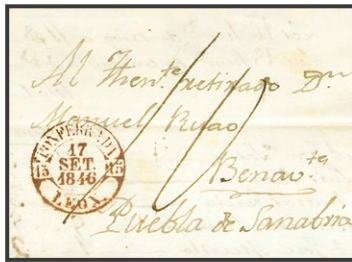 Al Then.te retirado Dn
Manuel Ruao
Benav.te
Puebla de Sanabria
PONFERRADA
15 17 15
SET.
1846
LEON.